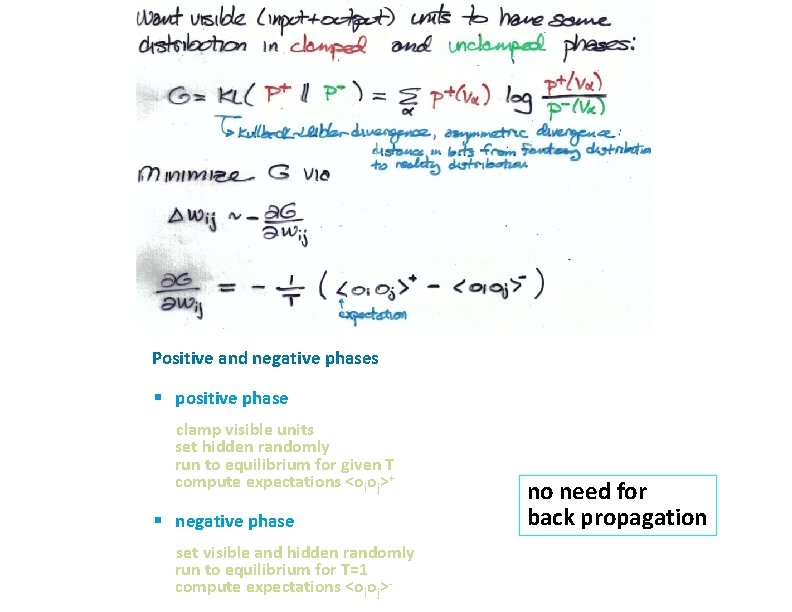 Want visible (input+output) units to have same
distribution in clamped and unclamped phases:
G = KL( P⁺ || P⁻ ) = Σ_α p⁺(V_α) log p⁺(V_α) / p⁻(V_α)
↳ Kullback-Leibler divergence, asymmetric divergence:
distance in bits from fantasy distribution
to reality distribution
Minimize G via
ΔW_ij ~ - ∂G / ∂W_ij
∂G / ∂W_ij = - 1/T ( <o_i o_j>⁺ - <o_i o_j>⁻ )
↑
expectation
Positive and negative phases
▪ positive phase
clamp visible units
set hidden randomly
run to equilibrium for given T
compute expectations <o_i o_j>⁺
no need for
back propagation
▪ negative phase
set visible and hidden randomly
run to equilibrium for T=1
compute expectations <o_i o_j>⁻